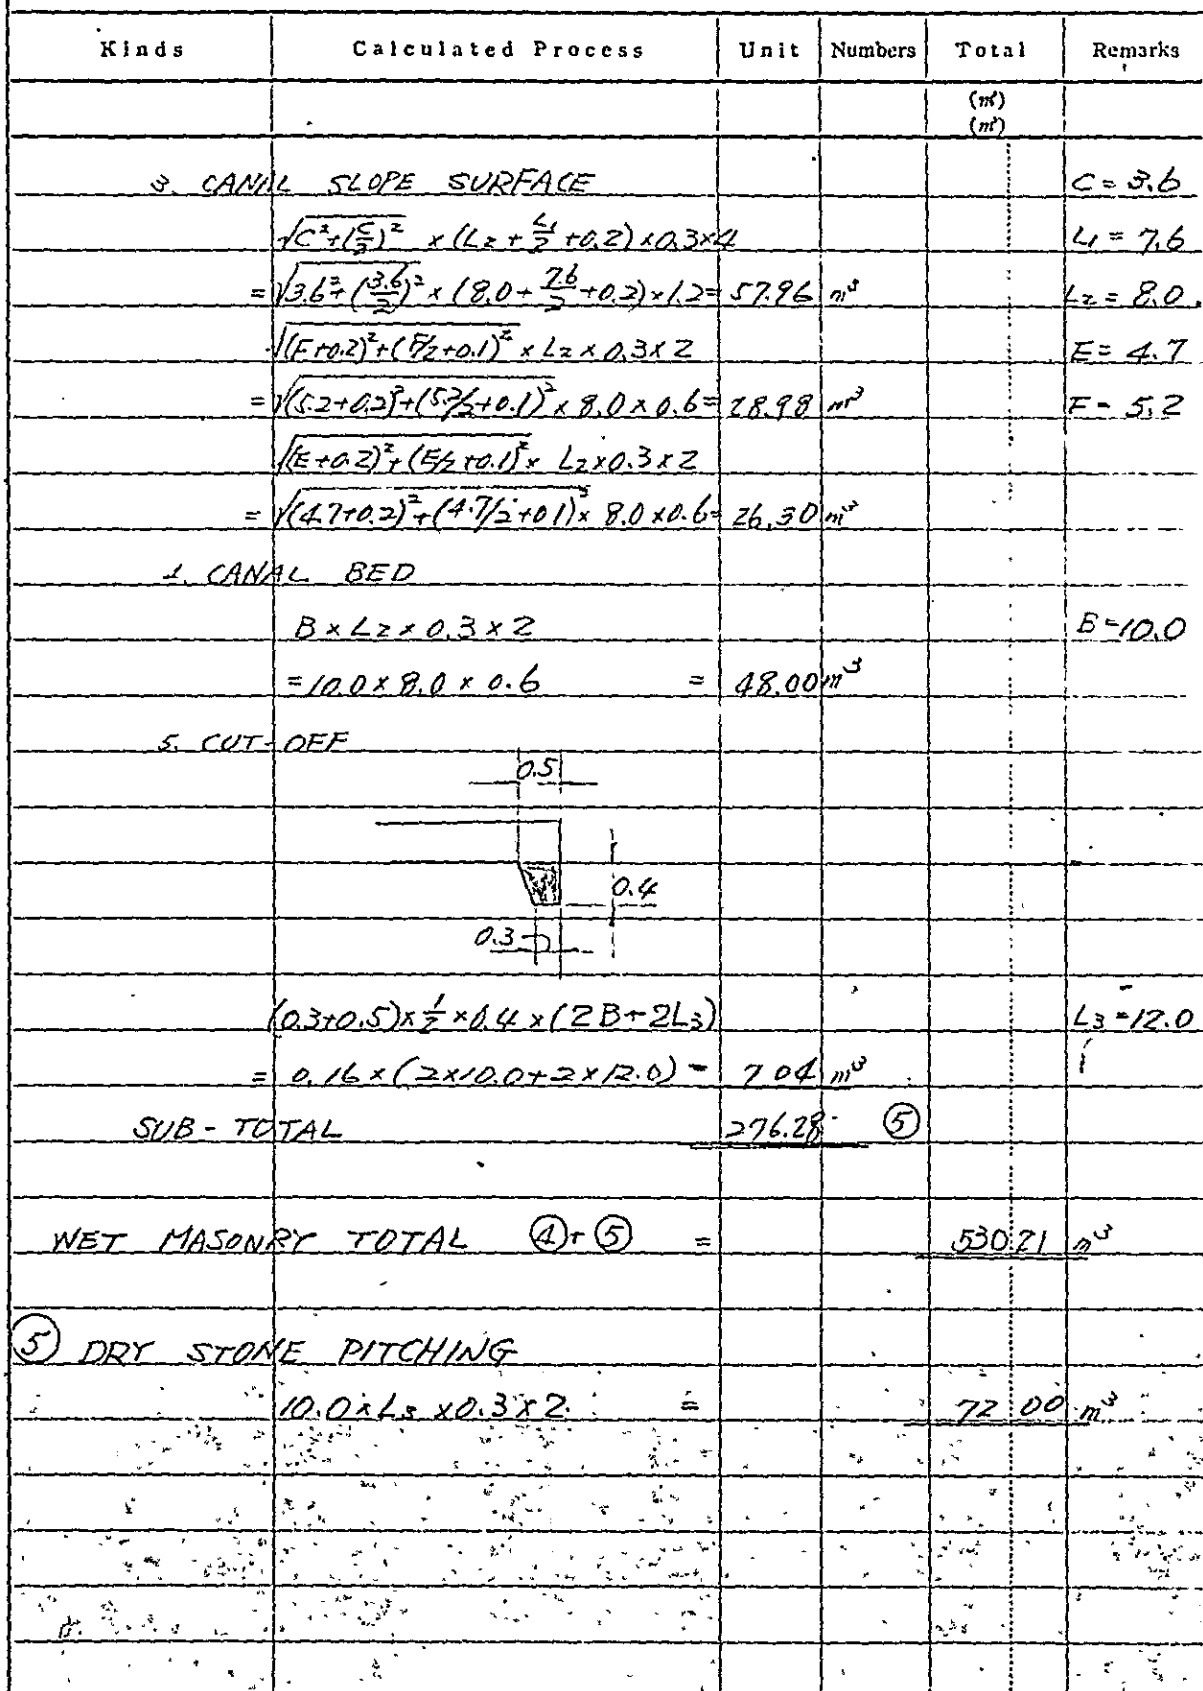 Kinds Calculated Process Unit Numbers Total Remarks
(m²)
(m³)
3. CANAL SLOPE SURFACE C = 3.6
√C²+(C/2)² × (L2 + L1/2 + 0.2) × 0.3 × 4 L1 = 7.6
= √3.6²+(3.6/2)² × (8.0 + 7.6/2 + 0.2) × 1.2 = 57.96 m³ L2 = 8.0
√(F+0.2)²+(F/2+0.1)² × L2 × 0.3 × 2 E = 4.7
= √(5.2+0.2)²+(5.2/2+0.1)² × 8.0 × 0.6 = 28.98 m³ F = 5.2
√(E+0.2)²+(E/2+0.1)² × L2 × 0.3 × 2
= √(4.7+0.2)²+(4.7/2+01)² × 8.0 × 0.6 = 26.30 m³
4. CANAL BED
B × L2 × 0.3 × 2 B = 10.0
= 10.0 × 8.0 × 0.6 = 48.00 m³
5. CUT-OFF
0.5
0.4
0.3
(0.3+0.5) × 1/2 × 0.4 × (2B + 2L3) L3 = 12.0
= 0.16 × (2×10.0 + 2×12.0) = 7.04 m³
SUB-TOTAL 276.28 ⑤
WET MASONRY TOTAL ④+⑤ = 530.21 m³
⑤ DRY STONE PITCHING
10.0 × L3 × 0.3 × 2 = 72.00 m³